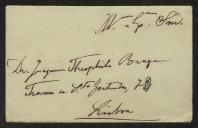 Illmo. e Exmo. Snr.
Dr. Joaquim Theophilo Braga
Travessa de Sta. Gertrudes, 70
Lisboa